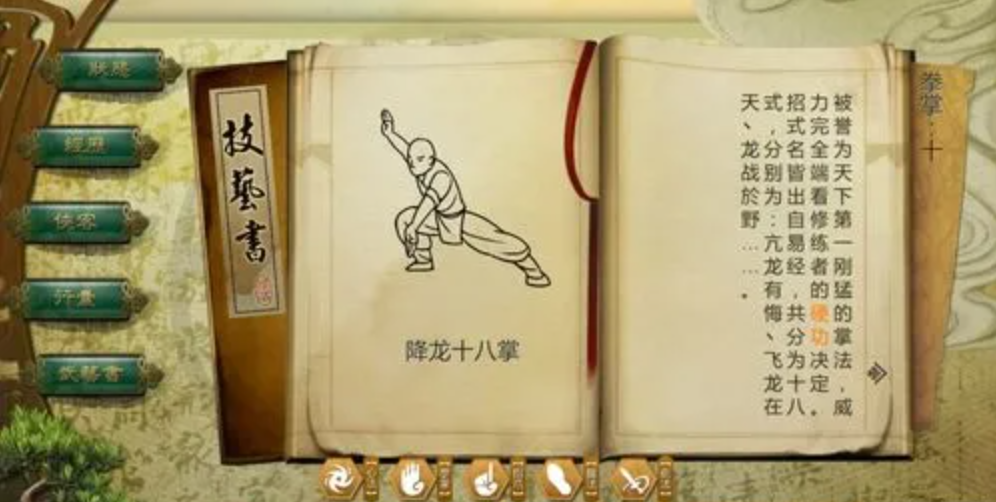 狀態
經歷
俠客
行囊
武藝書
技藝書
降龙十八掌
被誉为天下第一刚猛的掌法，威
力完全端看修练者的硬功决定。
招式名皆出自易经，共分为十八
式，分别为：亢龙有悔、飞龙在
天、龙战於野……。
拳掌：十